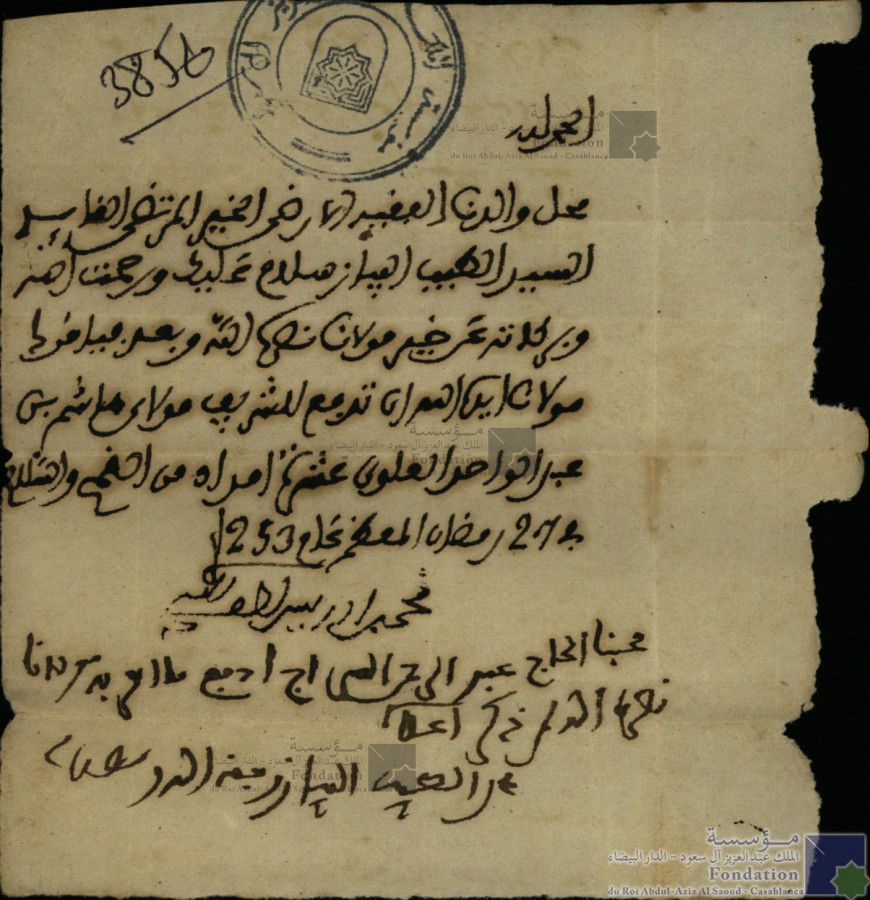 3856
الحمد لله
محل والدنا الفقيه الارضى الخير المرتضى
السيد الطيب البياز سلام عليك ورحمت الله
وبركاته عن خير مولانا نصره الله وبعد فيامرك
مولانا ايده الله ان تدفع للشريف مولاي هاشم بن
عبد الواحد العلوي عشرين امداه من القمح والسلام
في 27 رمضان المعظم عام 1253
محمد ادريس لطف الله به
محبنا الحاج عبد الرحمن السراج ادفع ما امر به مولانا
نصره الله لمن ذكر اعلاه
الطيب البياز الله
مؤسسة
الملك عبدالعزيز آل سعود - الدار البيضاء
Fondation
du Roi Abdul-Aziz Al Saoud - Casablanca